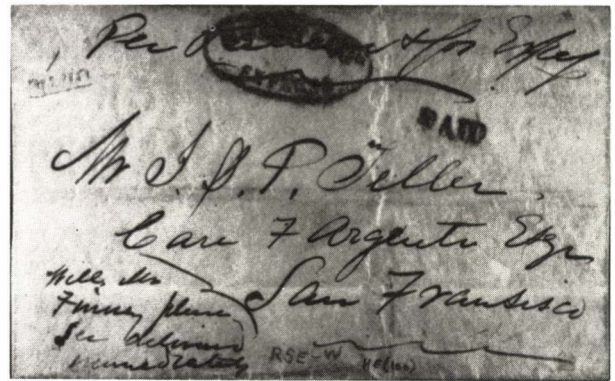 Per & Co's Express
EXPRESS
PAID
Mr J. S. P. Teller.
Care F Argenti Esqr
San Francisco
Will Mr
Finney please
See delivered
immediately
RSE-W